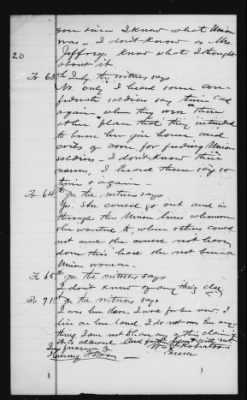 20
you since I knew what Union
was. I don't know as Mrs.
Jeffreys knew what I thought
about it.
To 63rd Inty. the witness says
No only I heard some con-
federate soldiers say time and
again, when they won the
that they intended
to burn her gin house, and
cords of corn, for feeding Union
soldiers. I don't know their
names, I heard them say so
time & again.
To 64th In. the witness says
Yes. She could go out and in
through the Union lines whenever
she wanted to, when others could
not and she could not have
done this less she not been a
Union woman.
To 65th In. the witness says
I don't know of any thing else
To 71st In. the witness says
I was her slave, I work for her now. I
live on her land, I do not owe her any
thing. I am not to share any of this claim
if it is allowed. And further deponent saith not
In presence of
mark